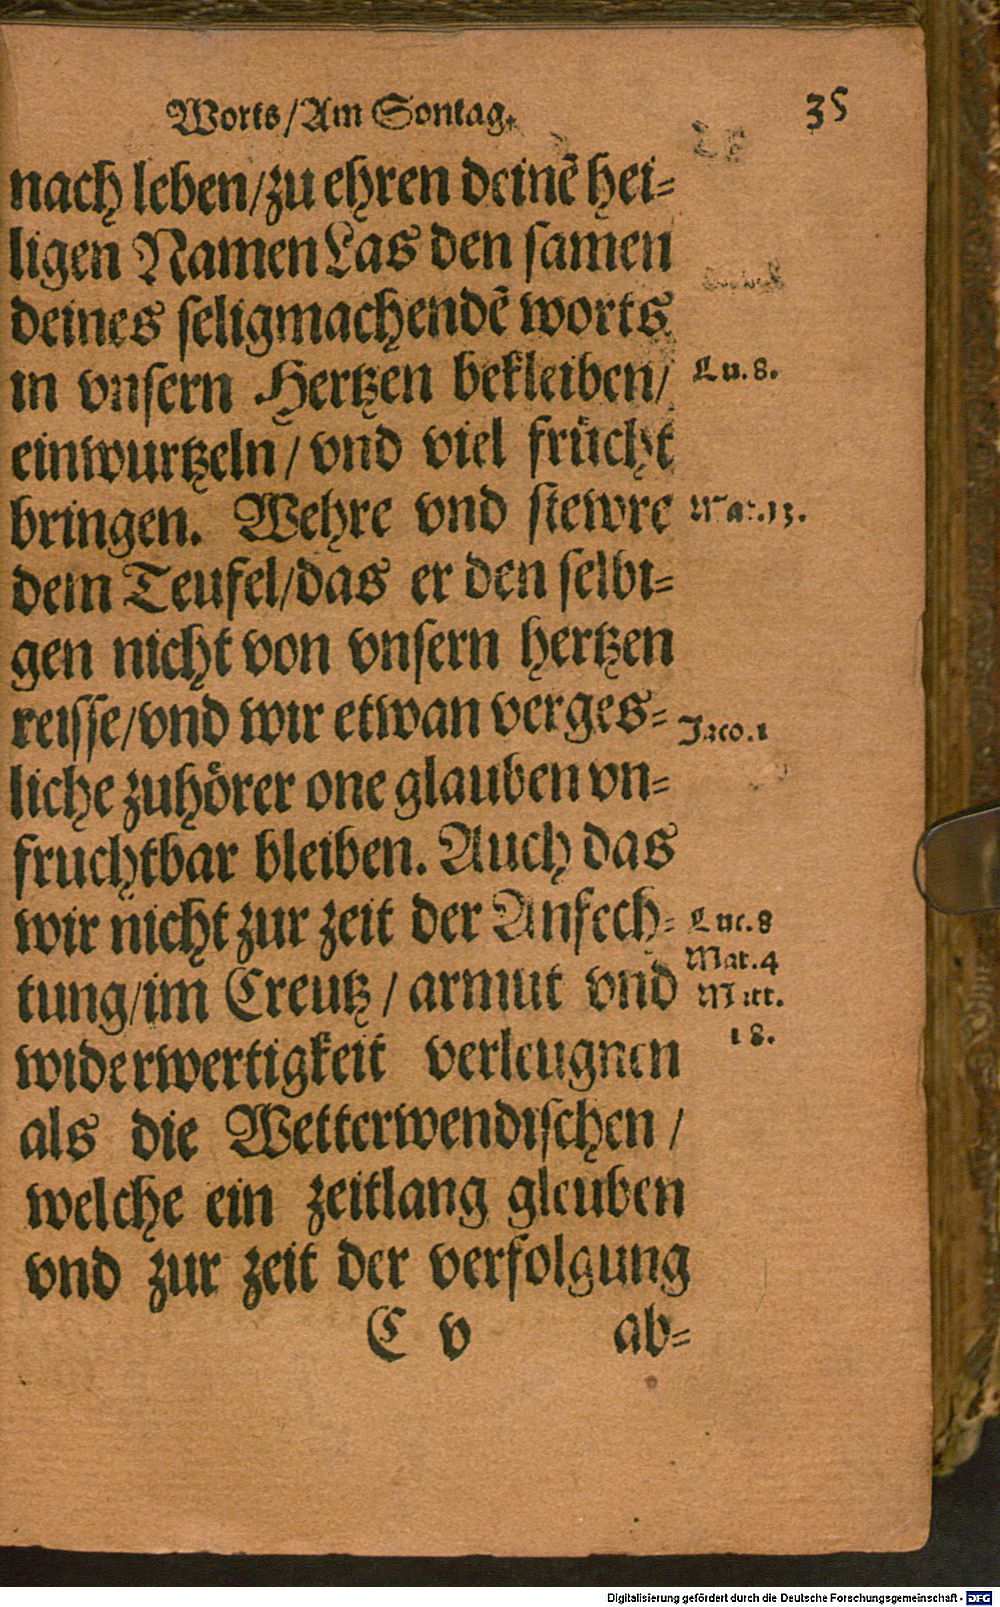 Worts/Am Sontag. 35
nach leben/zu ehren deinē hei-
ligen Namen Las den samen
deines seligmachendē worts
in vnsern Hertzen bekleiben/ Lu.8.
einwurtzeln/vnd viel frücht
bringen. Wehre vnd stewre Mat.13.
dem Teufel/das er den selbi-
gen nicht von vnsern hertzen
reisse/vnd wir etwan verges- Jaco.1
liche zuhörer one glauben vn-
fruchtbar bleiben. Auch das
wir nicht zur zeit der Anfech- Luc.8
Mat.4
tung/im Creutz/armut vnd Matt.
18.
widerwertigkeit verleugnen
als die Wetterwendischen/
welche ein zeitlang gleuben
vnd zur zeit der verfolgung
C v ab-
Digitalisierung gefördert durch die Deutsche Forschungsgemeinschaft - DFG